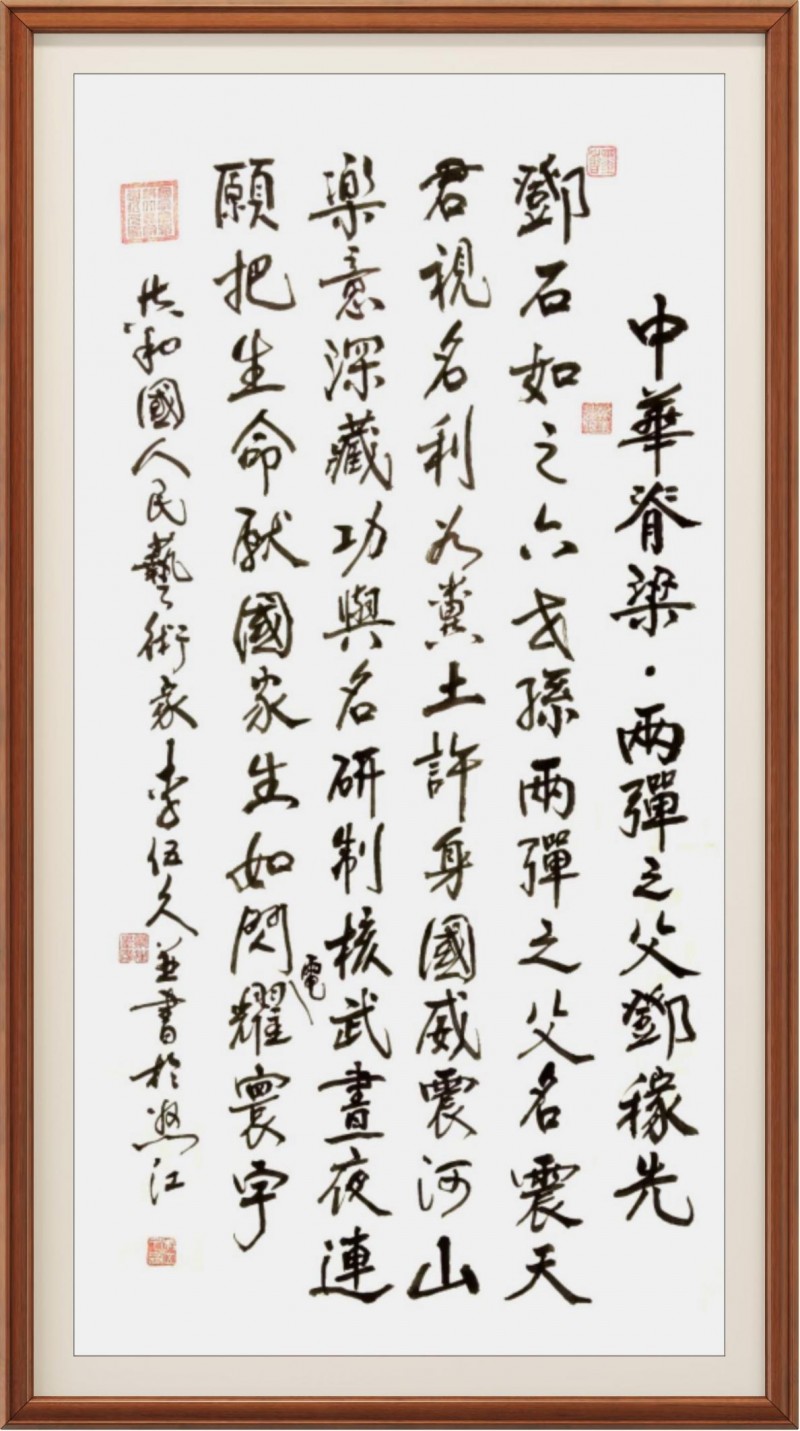 中華脊梁·兩彈之父鄧稼先
鄧石如之六世孫兩彈之父名震天
君視名利为糞土許身國威震河山
樂意深藏功與名研制核武晝夜連
願把生命献國家生如閃電耀寰宇
共和國人民藝術家李伍久並書於江